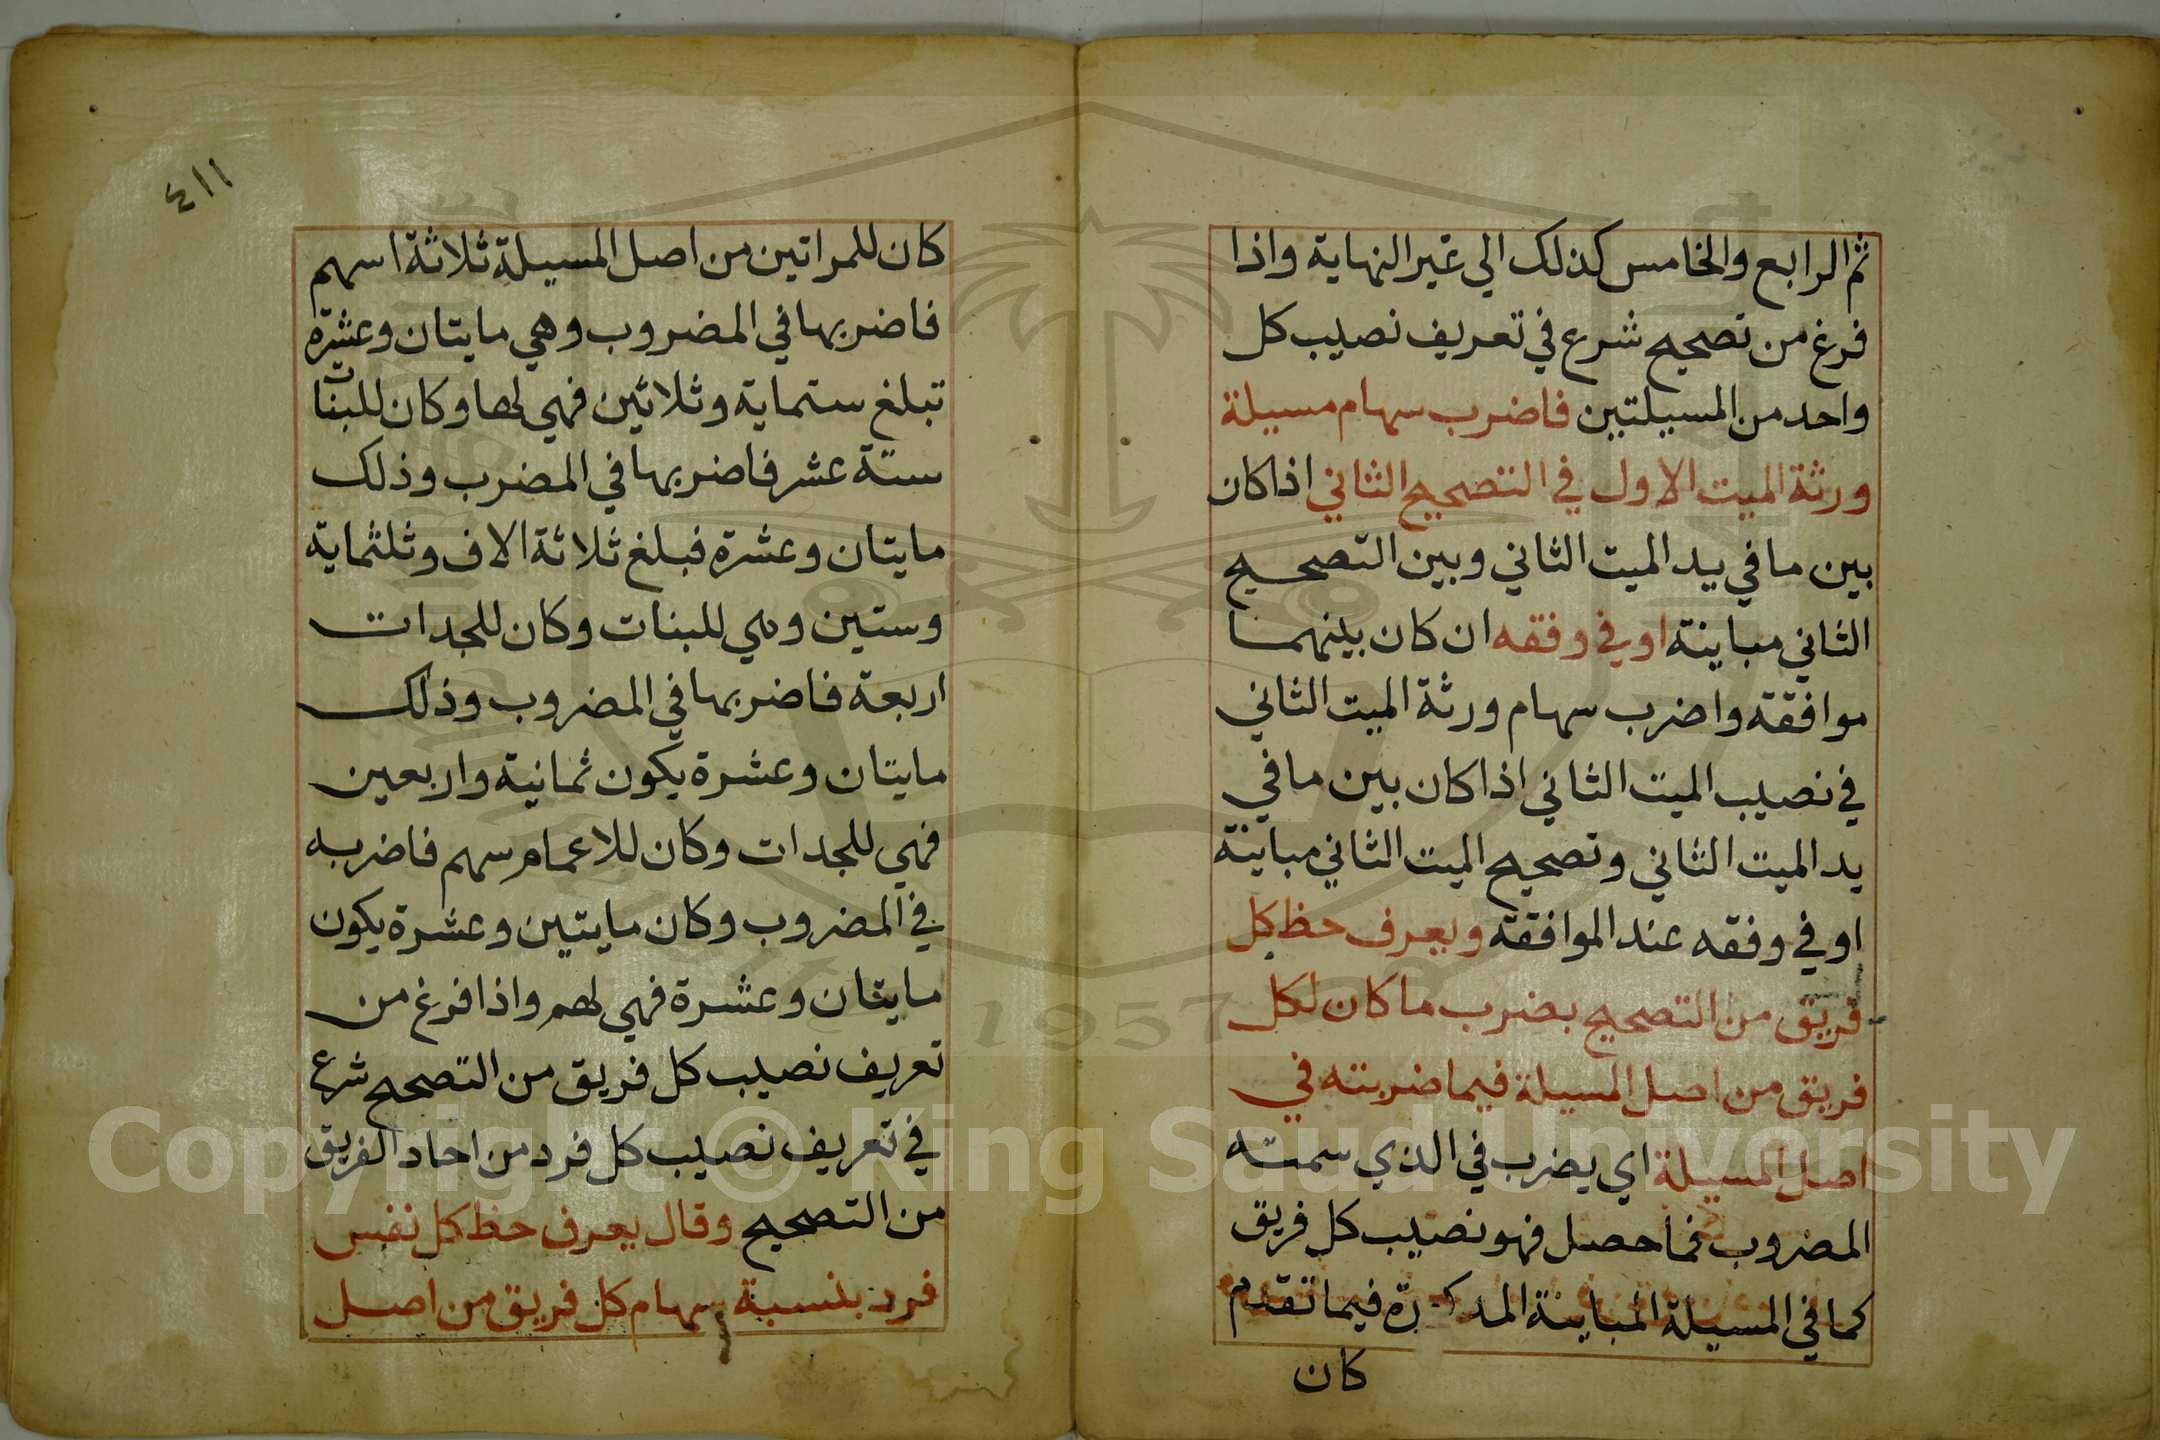 ثم الرابع والخامس كذلك الي غير النهاية واذا
فرغ من تصحيح شرع في تعريف نصيب كل
واحد من المسيلتين فاضرب سهام مسيلة
ورثة الميت الاول في التصحيح الثاني اذا كان
بين ما في يد الميت الثاني وبين التصحيح
الثاني مباينة او في وفقه ان كان بينهما
موافقة واضرب سهام ورثة الميت الثاني
في نصيب الميت الثاني اذا كان بين ما في
يد الميت الثاني وتصحيح الميت الثاني مباينة
او في وفقه عند الموافقة ويعرف حظ كل
فريق من التصحيح بضرب ما كان لكل
فريق من اصل المسيلة فيما ضربته في
اصل المسيلة اي يضرب في الذي سمته
المضروب فما حصل فهو نصيب كل فريق
كما في المسيلة المباينة المذكرة فيما تقدم
كان
٤١١
كان للمراتين من اصل المسيلة ثلاثة اسهم
فاضربها في المضروب وهي مايتان وعشرة
تبلغ ستماية وثلاثين فهي لهما وكان للبنات
ستة عشر فاضربها في المضرب وذلك
مايتان وعشرة فبلغ ثلاثة الاف وثلثماية
وستين وهي للبنات وكان للجدات
اربعة فاضربها في المضروب وذلك
مايتان وعشرة يكون ثمانية واربعين
فهي للجدات وكان للاعمام سهم فاضربه
في المضروب وكان مايتين وعشرة يكون
مايتان وعشرة فهي لهم واذا فرغ من
تعريف نصيب كل فريق من التصحيح شرع
في تعريف نصيب كل فرد من احاد الفريق
من التصحيح وقال يعرف حظ كل نفس
فرد بنسبة سهام كل فريق من اصل
1957
Copyright © King Saud University